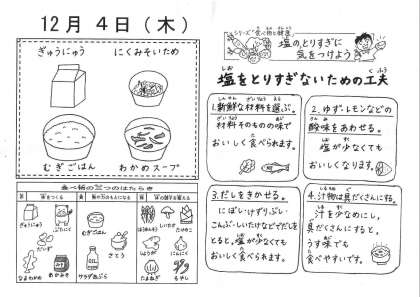 12月 4日(木)
ぎゅうにゅう
にくみそいため
むぎごはん
わかめスープ
食べ物の三つのはたらき
ぎゅうにゅう
ぶたにく
だいず
なまわかめ
あかみそ
むぎごはん
さとう
サラダあぶら
ほうれんそう
しいたけ
たけのこ
しょうが
にんにく
たまねぎ
もやし
シリーズ“食べ物と健康”
塩のとりすぎに
気をつけよう
塩をとりすぎないための工夫
しお
くふう
1.新鮮な材料を選ぶ。
材料そのものの味で
おいしく食べられます。
2.ゆず・レモンなどの
酸味をあわせる。
塩が少なくても
おいしくなります。
3.だしをきかせる。
にぼし・けずりぶし・
こんぶ・しいたけなどでだしを
とると、塩が少なくても
おいしく食べられます。
4.汁物は具だくさんにする。
汁を少なめにし、
具だくさんにすると、
うす味でも
食べやすいです。